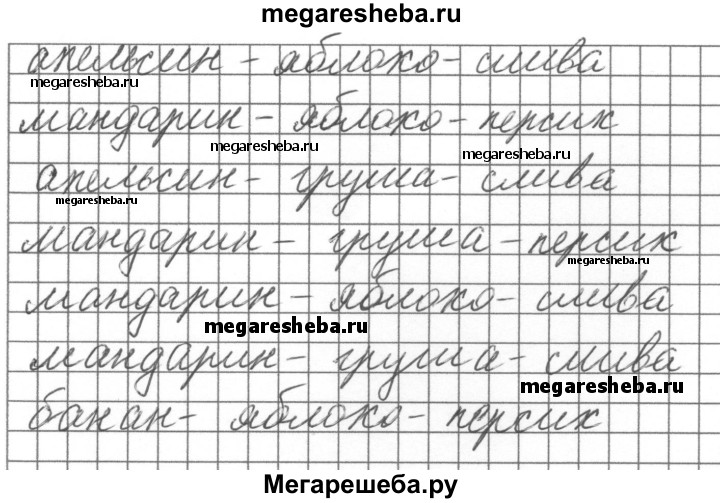 megaresheba.ru
апельсин - яблоко - слива
megaresheba.ru
мандарин - яблоко - персик
megaresheba.ru
megaresheba.ru
апельсин - груша - слива
megaresheba.ru
мандарин - груша - персик
megaresheba.ru
мандарин - яблоко - слива
megaresheba.ru
мандарин - груша - слива
megaresheba.ru
банан - яблоко - персик
Мегарешеба.ру